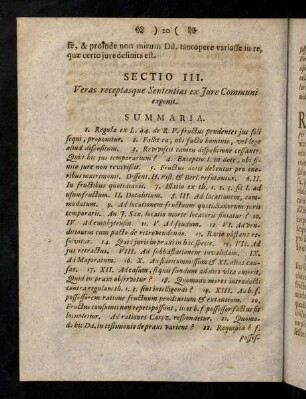 ( 10 (
se, & proinde non mirum Dd. tantopere variasse in re,
quæ certo jure definita est.
SECTIO III.
Veras receptasque Sententias ex Jure Communi
exponit.
SUMMARIA.
1. Regula ex L. 44. de R. V. fructus pendentes jus soli
sequi, proponitur. 2. ubi facto hominis, vel lege
aliud dispositum. 3. tamen dispositione cessante.
Quid hic jus temporarium? 4. Exceptus I. in dote, ubi fi-
nito jure non 5. Fructus dotis debentur pro one-
ribus matrimonii. Dissent. & Berl. refutantur. 6. II.
In fructibus quotidianis. 7. Ratio ex th. 1. 2. 3. fit I. ad
usumfructum. II. Ad 8. III. Ad locationem, com-
modatum. 9. Ad locationem fructuum quotidianorum juris
temporarii. An J. Sax. locatio morte locatoris finiatur? 10.
IV. Ad emphyteusin. 11. V. Ad feudum. 12. VI. Ad ven-
ditionem cum pacto de retrovendendo. 13. Ratio re-
solvitur. 14. Quid juris in praxi in hac specie. 15. VII. Ad
jus retractus. VIII. Ad subhastationem invalidam. 16. IX.
Ad Majoratum. 18. X. Ad & XI. ad ca-
sus. 17. XII. Ad casum, si quis fundum ad dies vitæ emerit.
Quid in praxi observatur? 18. Quomodo meres introducti
contra regulam th. 1. 3. sint intelligendi? 19. XIII. Ad b. f.
possessorem ratione fructuum pendentium & extantium. 20.
Fructus consumti non repeti possunt, licet b. f. possessor factus sit
locupletior. Ad rationes Carpz. respondetur. 21. Quomo-
do hic Dd. in testimonio de praxi varient? 22. Requisita b. f.
posses-